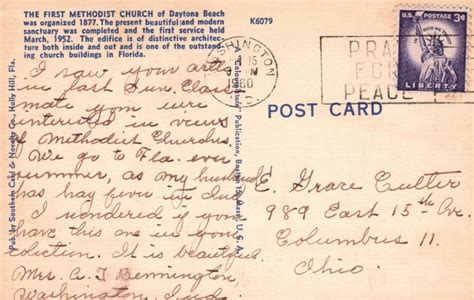 THE FIRST METHODIST CHURCH of Daytona Beach
was organized 1877. The present beautiful and modern
sanctuary was completed and the first service held
March, 1952. The edifice is of distinctive architec-
ture both inside and out and is one of the outstand-
ing church buildings in Florida.
K6079
WASHINGTON
15
PM
1960
D.C.
PRAY
FOR
PEACE
U.S. POSTAGE
3¢
IN GOD WE TRUST
LIBERTY
POST CARD
Pub. by Southern Card & Novelty Co., Holly Hill, Fla.
Publication, Boston 15, Mass., U.S.A.
I saw your
in last Sun. Class
mate you were
interested in views
of Methodist Churches
We go to Fla. ever
summer, as my husband
has hay fever in
I wondered if you
have this one in your
collection. It is beautiful
Mrs. A. J. Bennington,
Washington, Ind.
E. Grace Cutler
989 East 15th Ave
Columbus 11
Ohio